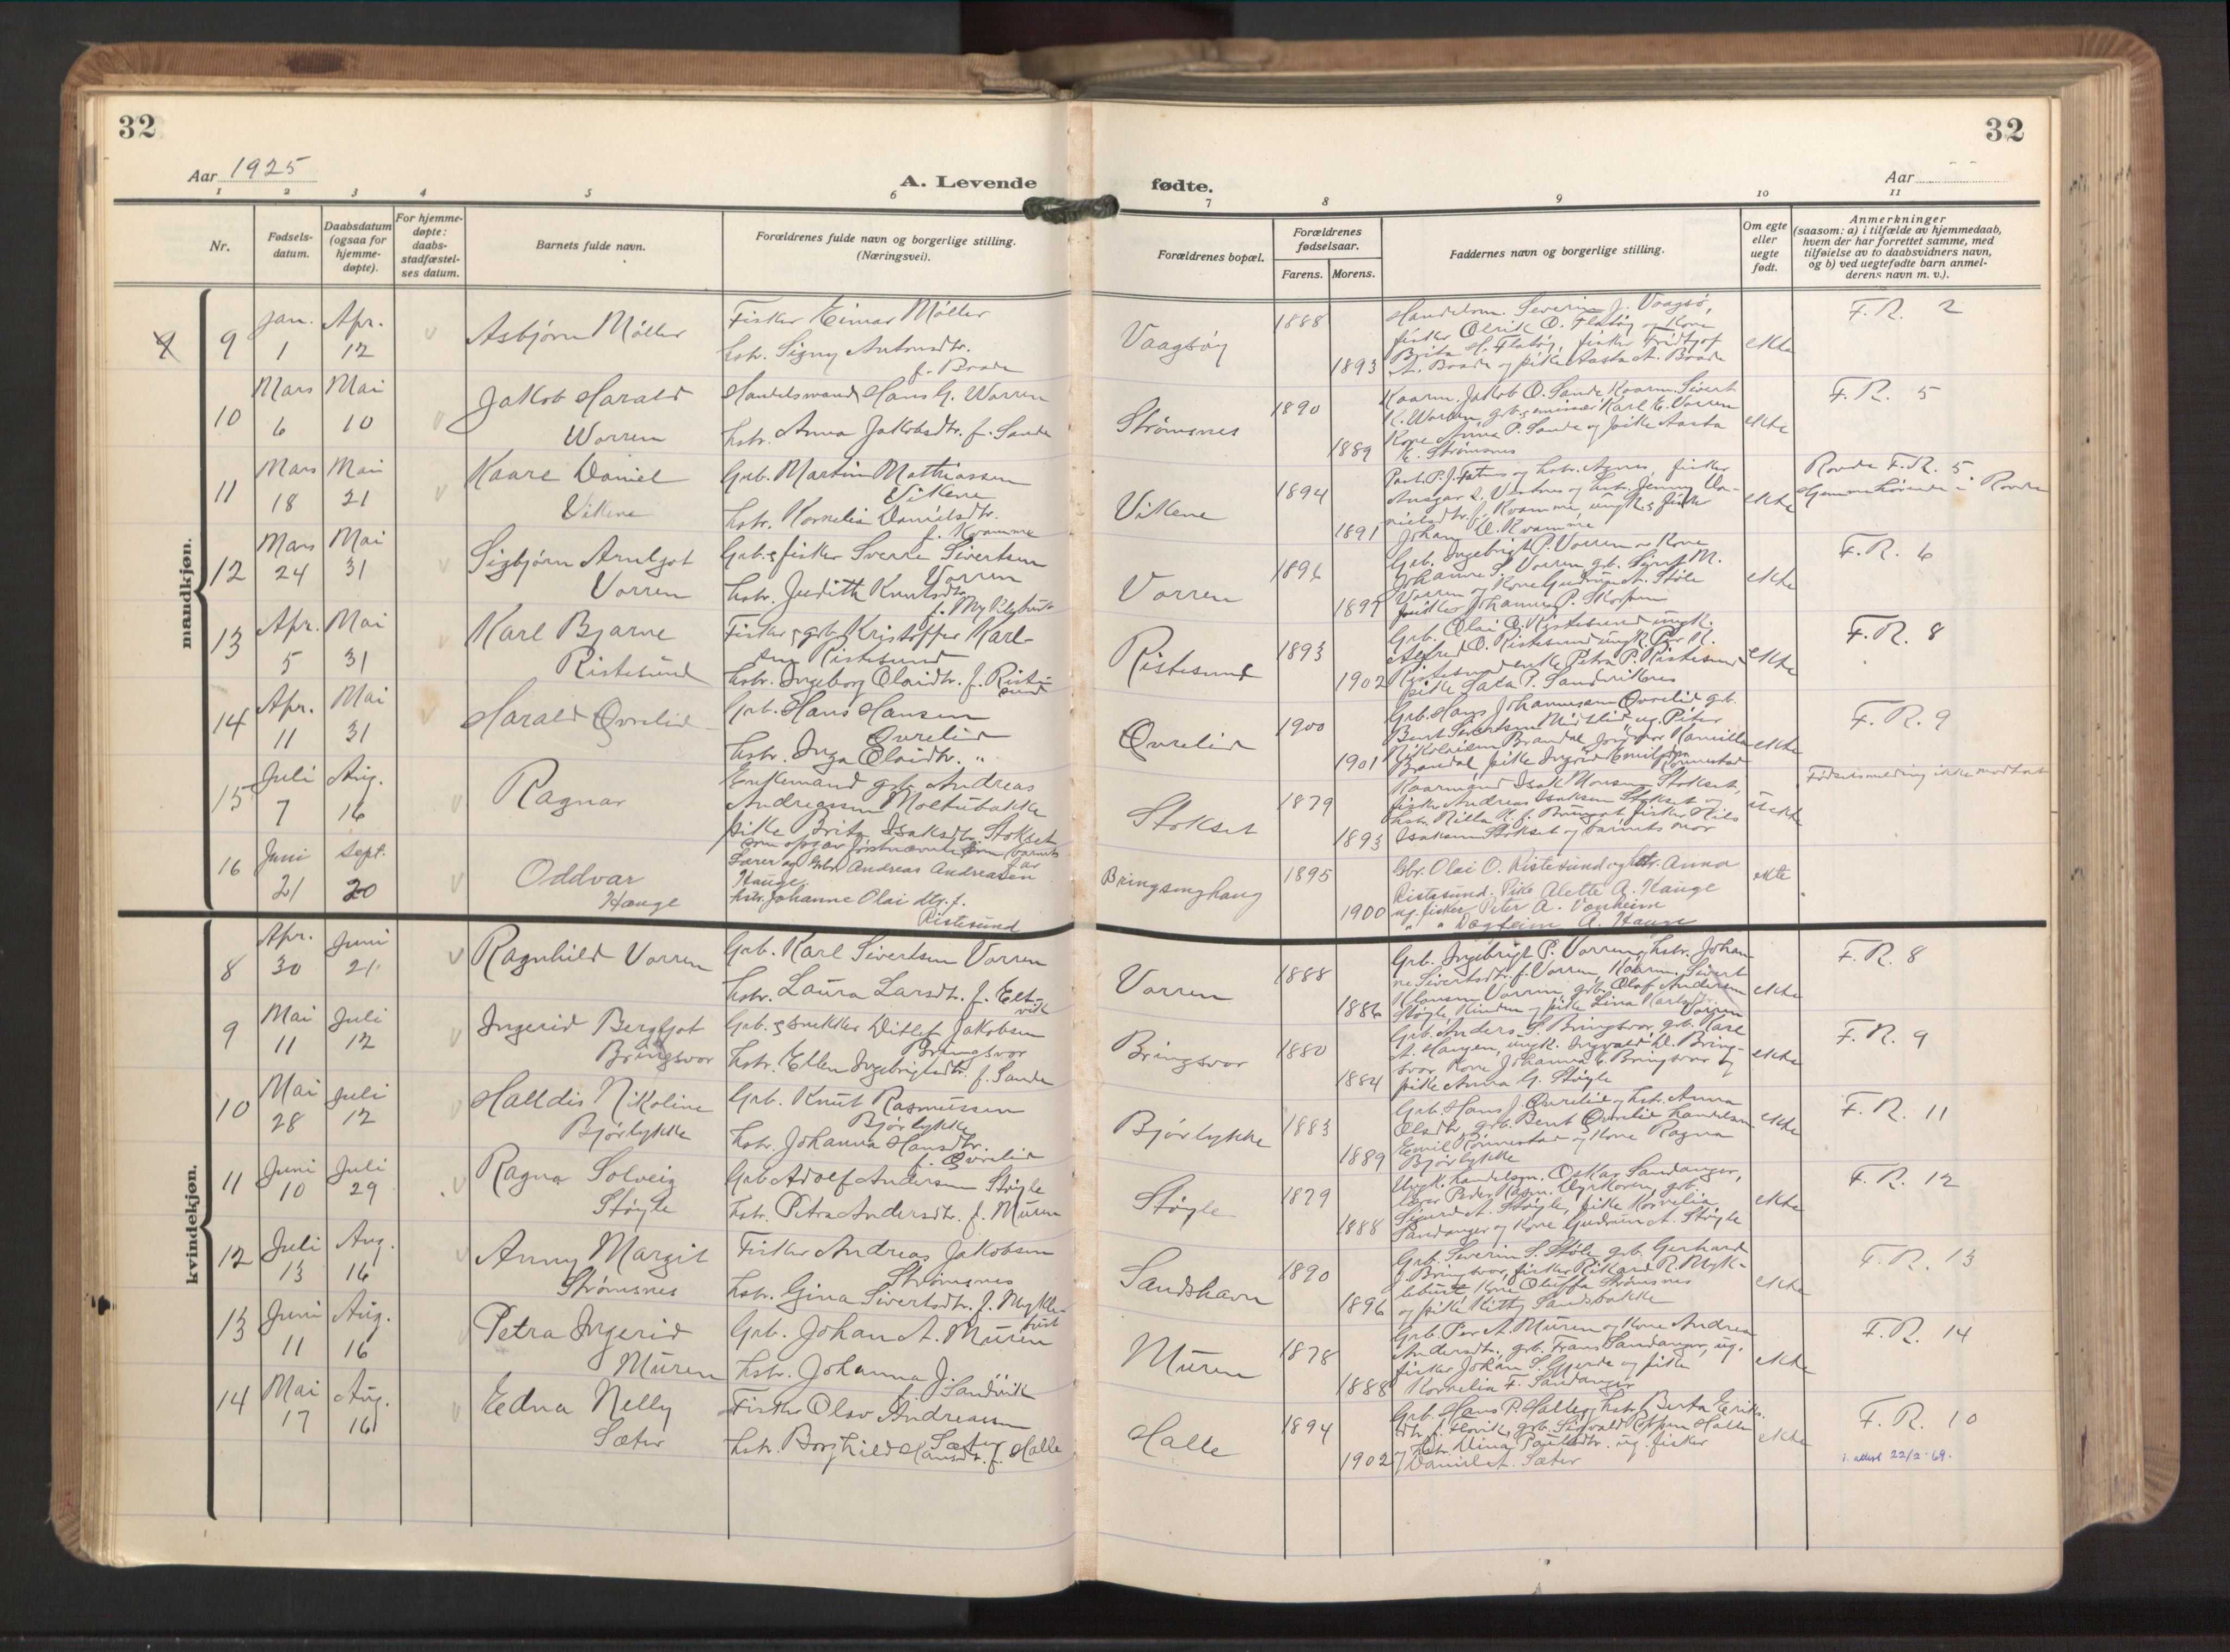 32
32
Aar 1925
A. Levende
fødte.
Aar
1
2
3
4
5
6
7
8
9
10
11
Nr.
Fødsels-
datum.
Daabsdatum
(ogsaa for
hjemme-
døpte).
For hjemme-
døpte:
daabs-
stadfæstel-
ses datum.
Barnets fulde navn.
Forældrenes fulde navn og borgerlige stilling.
(Næringsvei).
Forældrenes bopæl.
Forældrenes
fødselsaar.
Farens.
Morens.
Faddernes navn og borgerlige stilling.
Om egte
eller
uegte
født.
Anmerkninger
(saasom: a) i tilfælde av hjemmedaab,
hvem der har forrettet samme, med
tilføielse av to daabsvidners navn,
og b) ved uegtefødte barn anmel-
derens navn m. v.).
mandkjøn.
9
Jan. Apr.
1 12
Asbjørn Møller
Fisker Einar Møller
hstr. Signy Antonsdtr.
f. Brade
Vaagsøy
1888
1893
Handelsm. Severin J. Vaagsø,
fisker Olrik O. Flatøy og Kone
Brita H. Flatøy, fisker Fridtjof
A. Brade og pike Aasta A. Brade
ekte
F.R. 2
10
Mars Mai
6 10
Jakob Harald
Vorren
Handelsmand Hans G. Vorren
hstr. Anna Jakobsdtr. f. Sande
Strømsnes
1890
1889
Kaarm. Jakob O. Sande Kaarm. Sivert
K. Vorren, grb. & emissær Karl E. Vorren
Kone Anna P. Sande og pike Aasta
K. Strømsnes
ekte
F.R. 5
11
Mars Mai
18 21
Kaare Daniel
Vikene
Grb. Martin Mathiassen
Vikene
hstr. Kornelia Danielsdtr.
f. Kvamme
Vikene
1894
1891
Past. P. J. og hstr. Agnes, fisker
Ansgar L. og hstr. Jenny Da-
nielsdtr. f. Kvamme, ungk. & fisker
Johan D. Kvamme
ekte
Rovde F.R. 5
Hjemmehørende i Rovde
12
Mars Mai
24 31
Sigbjørn Arnljot
Vorren
Grb. & fisker Sverre Sivertsen
Vorren
hstr. Judith Knutsdtr.
f. Myklebust
Vorren
1896
1897
Grb. Ingebrigt P. Vorren og Kone
Johanne S. Vorren grb. Sivert M.
Vorren og Kone Gudrun A. Støle
fisker Johannes P. Skorpen
ekte
F.R. 6
13
Apr. Mai
5 31
Karl Bjarne
Ristesund
Fisker & grb. Kristoffer Karl-
sen Ristesund
hstr. Ingeborg Olaidtr. f. Riste-
sund
Ristesund
1893
1902
Grb. Olai O. Ristesund ungk.
Alfred O. Ristesund ungk. Per K.
Ristesund enke Petra P. Ristesund
pike P. Sandviknes
ekte
F.R. 8
14
Apr. Mai
11 31
Harald Øvrelid
Grb. Hans Hansen
Øvrelid
hstr. Inga Olaidtr. "
Øvrelid
1900
1901
Grb. Hans Johannesen Øvrelid grb.
Bent Sivertsen Midtlid ug. Peter
Nikolaisen Brandal, Kamilla
Brandal, pike Ingrid Emilsdtr.
Rønnestad
ekte
F.R. 9
15
Juli Aug.
7 16
Ragnar
Enkemand grb. Andreas
Andreassen Moltubakke
pike Brita Isaksdtr. Stokset
som opgav førstnævnte som barnets
far
Stokset
1879
1893
Kaarmand Isak Monsen Stokset,
fisker Andreas Isaksen Stokset og
hstr. Nilla K. f. fisker Nils
Isaksen Stokset og barnets mor
uekte
Fødselsmelding ikke modtat
16
Juni Sept.
21 20
Oddvar
Hauge
Lærer og Gbr. Andreas Andreasen
Hauge
hstr. Johanne Olai dtr. f.
Ristesund
Bringsinghaug
1895
1900
Gbr. Olai O. Ristesund og hstr. Anna
Ristesund. Pike Alette A. Hauge
ug. fisker Peter A. Vonheim
" " Dagfinn A. Hauge
ekte
kvindekjøn.
8
Apr. Juni
30 21
Ragnhild Vorren
Grb. Karl Sivertsen Vorren
hstr. Laura Larsdtr. f. Eltvik
Vorren
1888
1886
Grb. Ingebrigt P. Vorren og hstr. Johan-
ne Sivertsdtr. f. Vorren, Kaarm. Sivert
Klausen Vorren, grb. Olaf Andersen
Støyle Kinden og pike Lina Karlsdtr.
Vorren
ekte
F.R. 8
9
Mai Juli
11 12
Ingerid Bergljot
Bringsvor
Grb. & snekker Ditlef Jakobsen
Bringsvor
hstr. Ellen Ingebrigtsdtr. f. Sande
Bringsvor
1880
1884
Grb. Anders S. Bringsvor, grb. Karl
A. Haugen, ungk. Ingvald D. Bring-
svor, Kone Johanna E. Bringsvor og
pike Anna G. Støyle
ekte
F.R. 9
10
Mai Juli
28 12
Halldis Nikoline
Bjørlykke
Grb. Knut Rasmussen
Bjørlykke
hstr. Johanna Hansdtr.
f. Øvrelid
Bjørlykke
1883
1889
Grb. Hans J. Øvrelid og hstr. Anna
Olsdtr. grb. Bent Øvrelid handelsm.
Emil Rønnestad og Kone Ragna
Bjørlykke
ekte
F.R. 11
11
Juni Juli
10 29
Ragna Solveig
Støyle
Grb. Adolf Andersen Støyle
hstr. Petra Andersdtr. f. Muren
Støyle
1879
1888
Ungk. handelsm. Oskar Sandanger,
lærer Peder Rasm. Myrkoren, grb.
Sigurd A. Støyle, pike Kornelia
Sandanger og Kone Gudrun A. Støyle
ekte
F.R. 12
12
Juli Aug.
13 16
Anny Margit
Strømsnes
Fisker Andreas Jakobsen
Strømsnes
hstr. Gina Sivertsdtr. f. Mykle-
bust
Sandshavn
1890
1896
Grb. Severin S. Støle, grb. Gerhard
J. Bringsvor, fisker Rikard R. Myk-
lebust Kone Oluffa Strømsnes
og pike Kitty Sandsbakke
ekte
F.R. 13
13
Juni Aug.
11 16
Petra Ingerid
Muren
Grb. Johan A. Muren
hstr. Johanna J.
f. Sandvik
Muren
1878
1888
Grb. Per A. Muren og Kone Andrea
Andersdtr., grb. Frans Sandanger, ug.
fisker Johan S. Gjerde og pike
Kornelia F. Sandanger
ekte
F.R. 14
14
Mai Aug.
17 16
Edna Nelly
Sæter
Fisker Olav Andreassen
Sæter
hstr. Borghild Hansdtr. f. Halle
Halle
1894
1902
Grb. Hans P. Halle og hstr. Berta Eriks-
dtr. f. grb. Sigvald Halle
og hstr. Dina Paulsdtr. ug. fisker
Daniel A. Sæter
ekte
F.R. 10
i. attest 22/2-69.